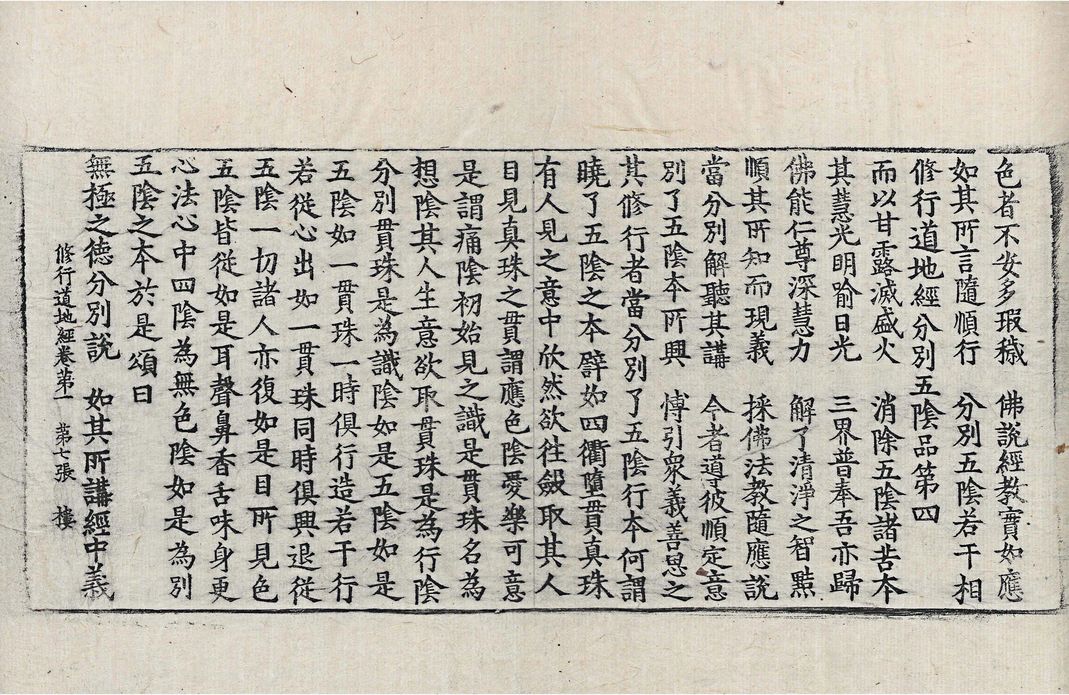 色者不安多瑕穢　佛說經教實如應
如其所言隨順行　分別五陰若干相
修行道地經分別五陰品第四
而以甘露滅盛火　消除五陰諸苦本
其慧光明喻日光　三界普奉吾亦歸
佛能仁尊深慧力　解了清淨之智黠
順其所知而現義　採佛法教隨應說
當分別解聽其講　今者導彼順定意
別了五陰本所興　博引衆義善思之
其修行者當分別了五陰行本何謂
曉了五陰之本譬如四衢墮貫真珠
有人見之意中欣然欲往斂取其人
目見真珠之貫謂應色陰愛樂可意
是謂痛陰初始見之識是貫珠名為
想陰其人生意欲取貫珠是為行陰
分別貫珠是為識陰如是五陰如是
五陰如一貫珠一時俱行造若干行
若從心出如一貫珠同時俱興退從
五陰一切諸人亦復如是目所見色
五陰皆從如是耳聲鼻香舌味身更
心法心中四陰為無色陰如是為別
五陰之本於是頌曰
無極之德分別說　如其所講經中義
修行道地經卷第一　第七張　樓